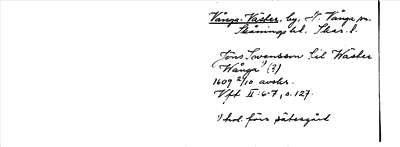 Vånga, Väster, by, N. Vånga sn.
Skånings hd, Skar. l.
Jöns Svensson til Wäster
Wånga (?)
1609 2/10 avskr.
Vft II: 6-7, s. 127.
1 hd. förs sätesgård